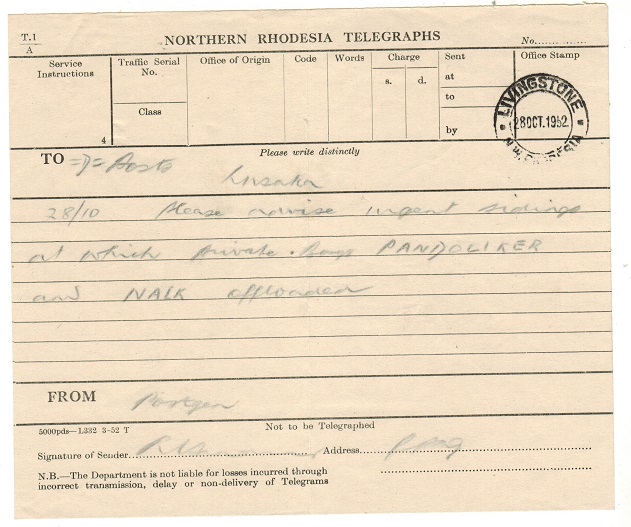 T.1
A
NORTHERN RHODESIA TELEGRAPHS
No.
Service Instructions
4
Traffic Serial No.
Class
Office of Origin
Code
Words
Charge
s. d.
Sent
at
to
by
Office Stamp
LIVINGSTONE
28 OCT. 1952
N. RHODESIA
TO =D= Posts
Please write distinctly
Lusaka
28/10 Please advise urgent sidings
at which private bags PANDOLIKER
and NAIK offloaded
FROM Postgen
5000pds—1.332 3-52 T
Not to be Telegraphed
Signature of Sender Address
N.B.—The Department is not liable for losses incurred through
incorrect transmission, delay or non-delivery of Telegrams